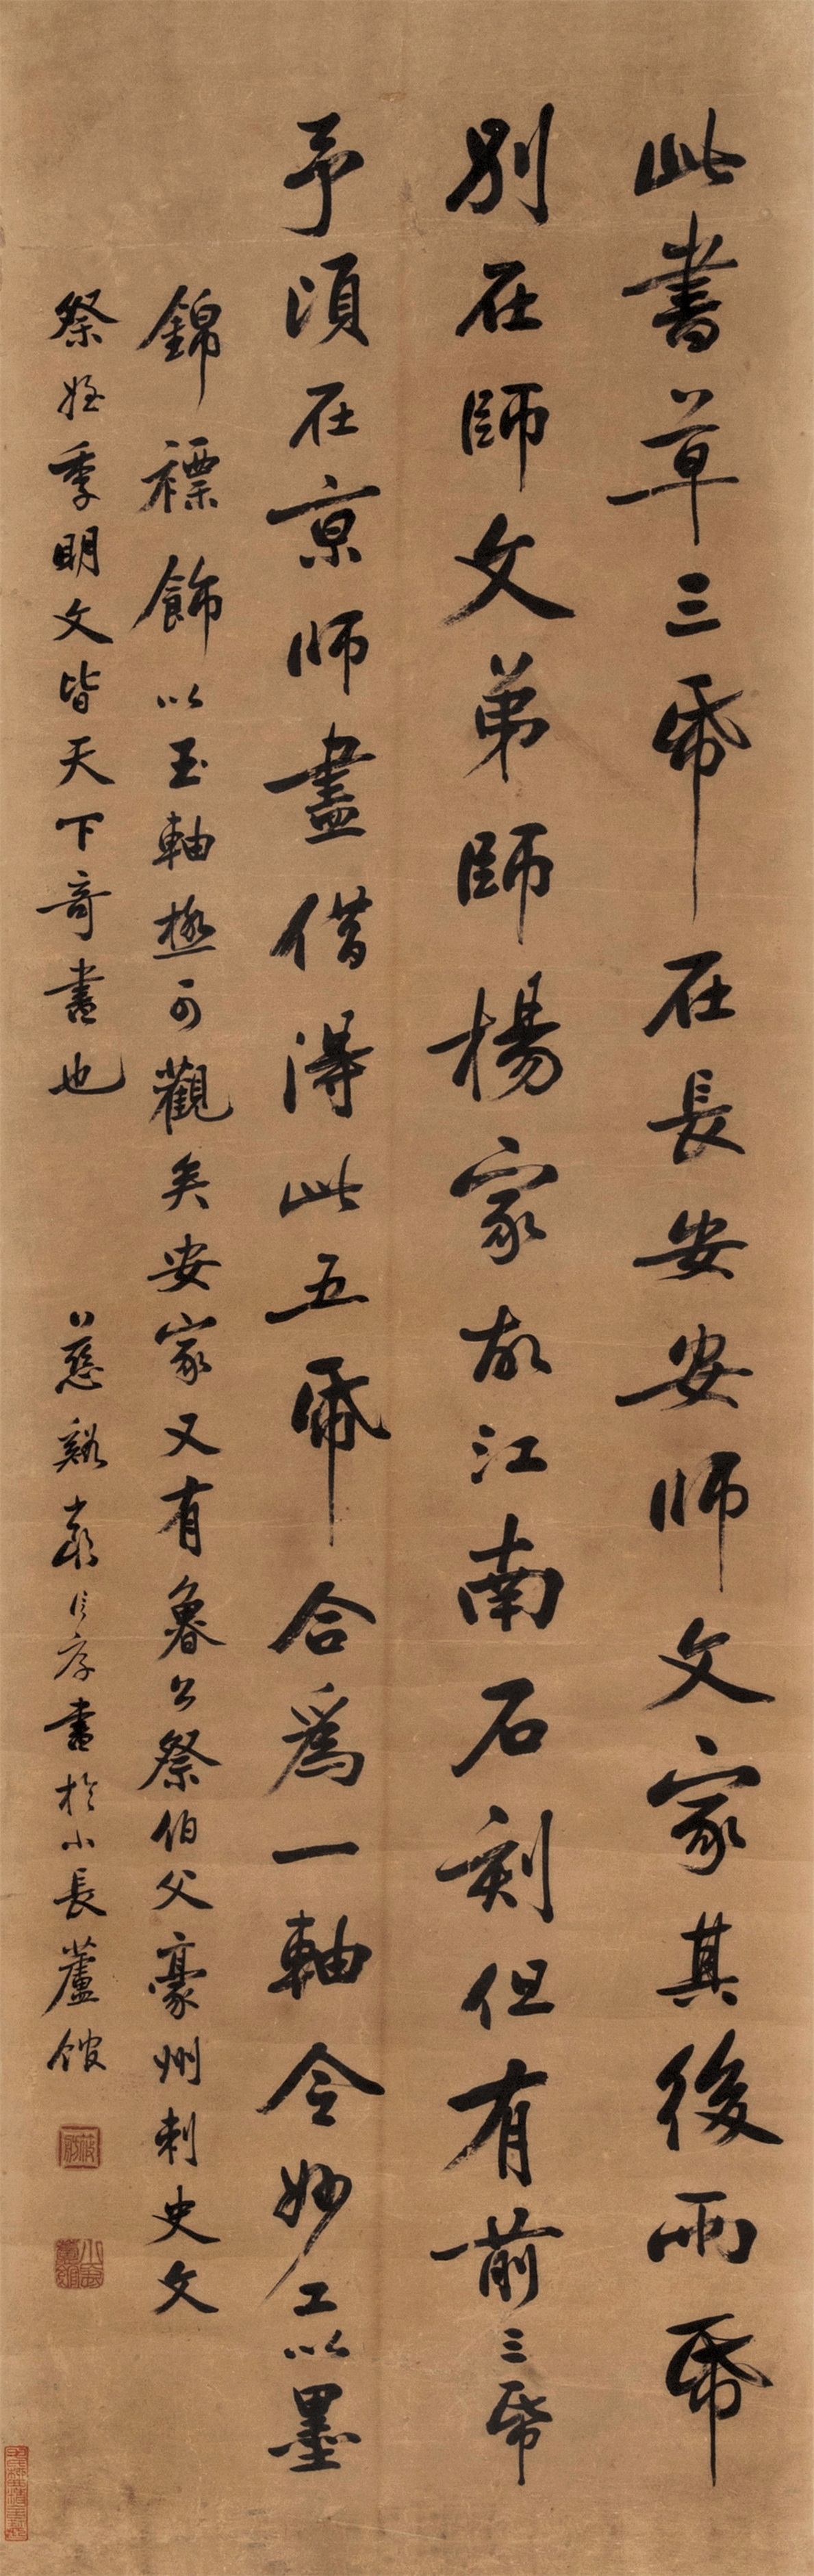 此書草三帋在長安安师文家其後兩帋
别在師文弟師楊家故江南石刻但有前三帋
予頃在京师盡借得此五帋合爲一軸令妙工以墨
錦褾飾以玉軸極可觀矣安家又有魯公祭伯父豪州刺史文
祭姪季明文皆天下奇書也
慈谿裘 存書於小長蘆館